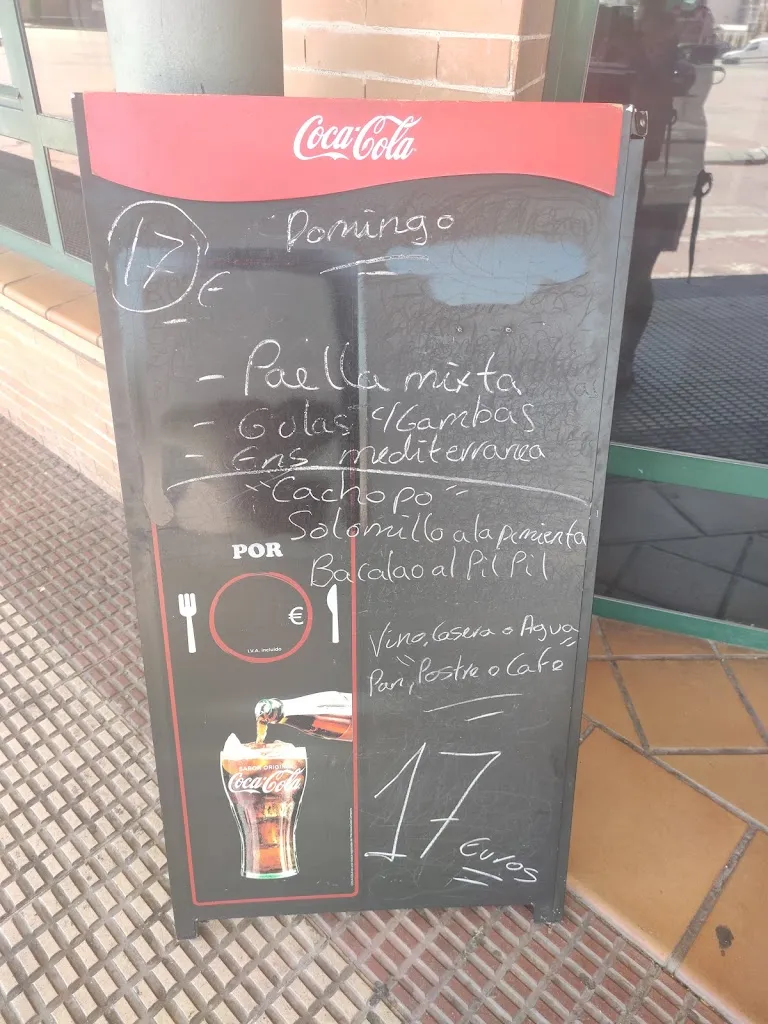 Coca-Cola
Domingo
17 €
- Paella mixta
- Gulas c/Gambas
- Ens mediterranea
"Cachopo"
Solomillo a la pimienta
Bacalao al Pil Pil
POR
€
I.V.A. incluido
Vino, Casera o Agua
Pan, Postre o Café
SABOR ORIGINAL
Coca-Cola
17
Euros